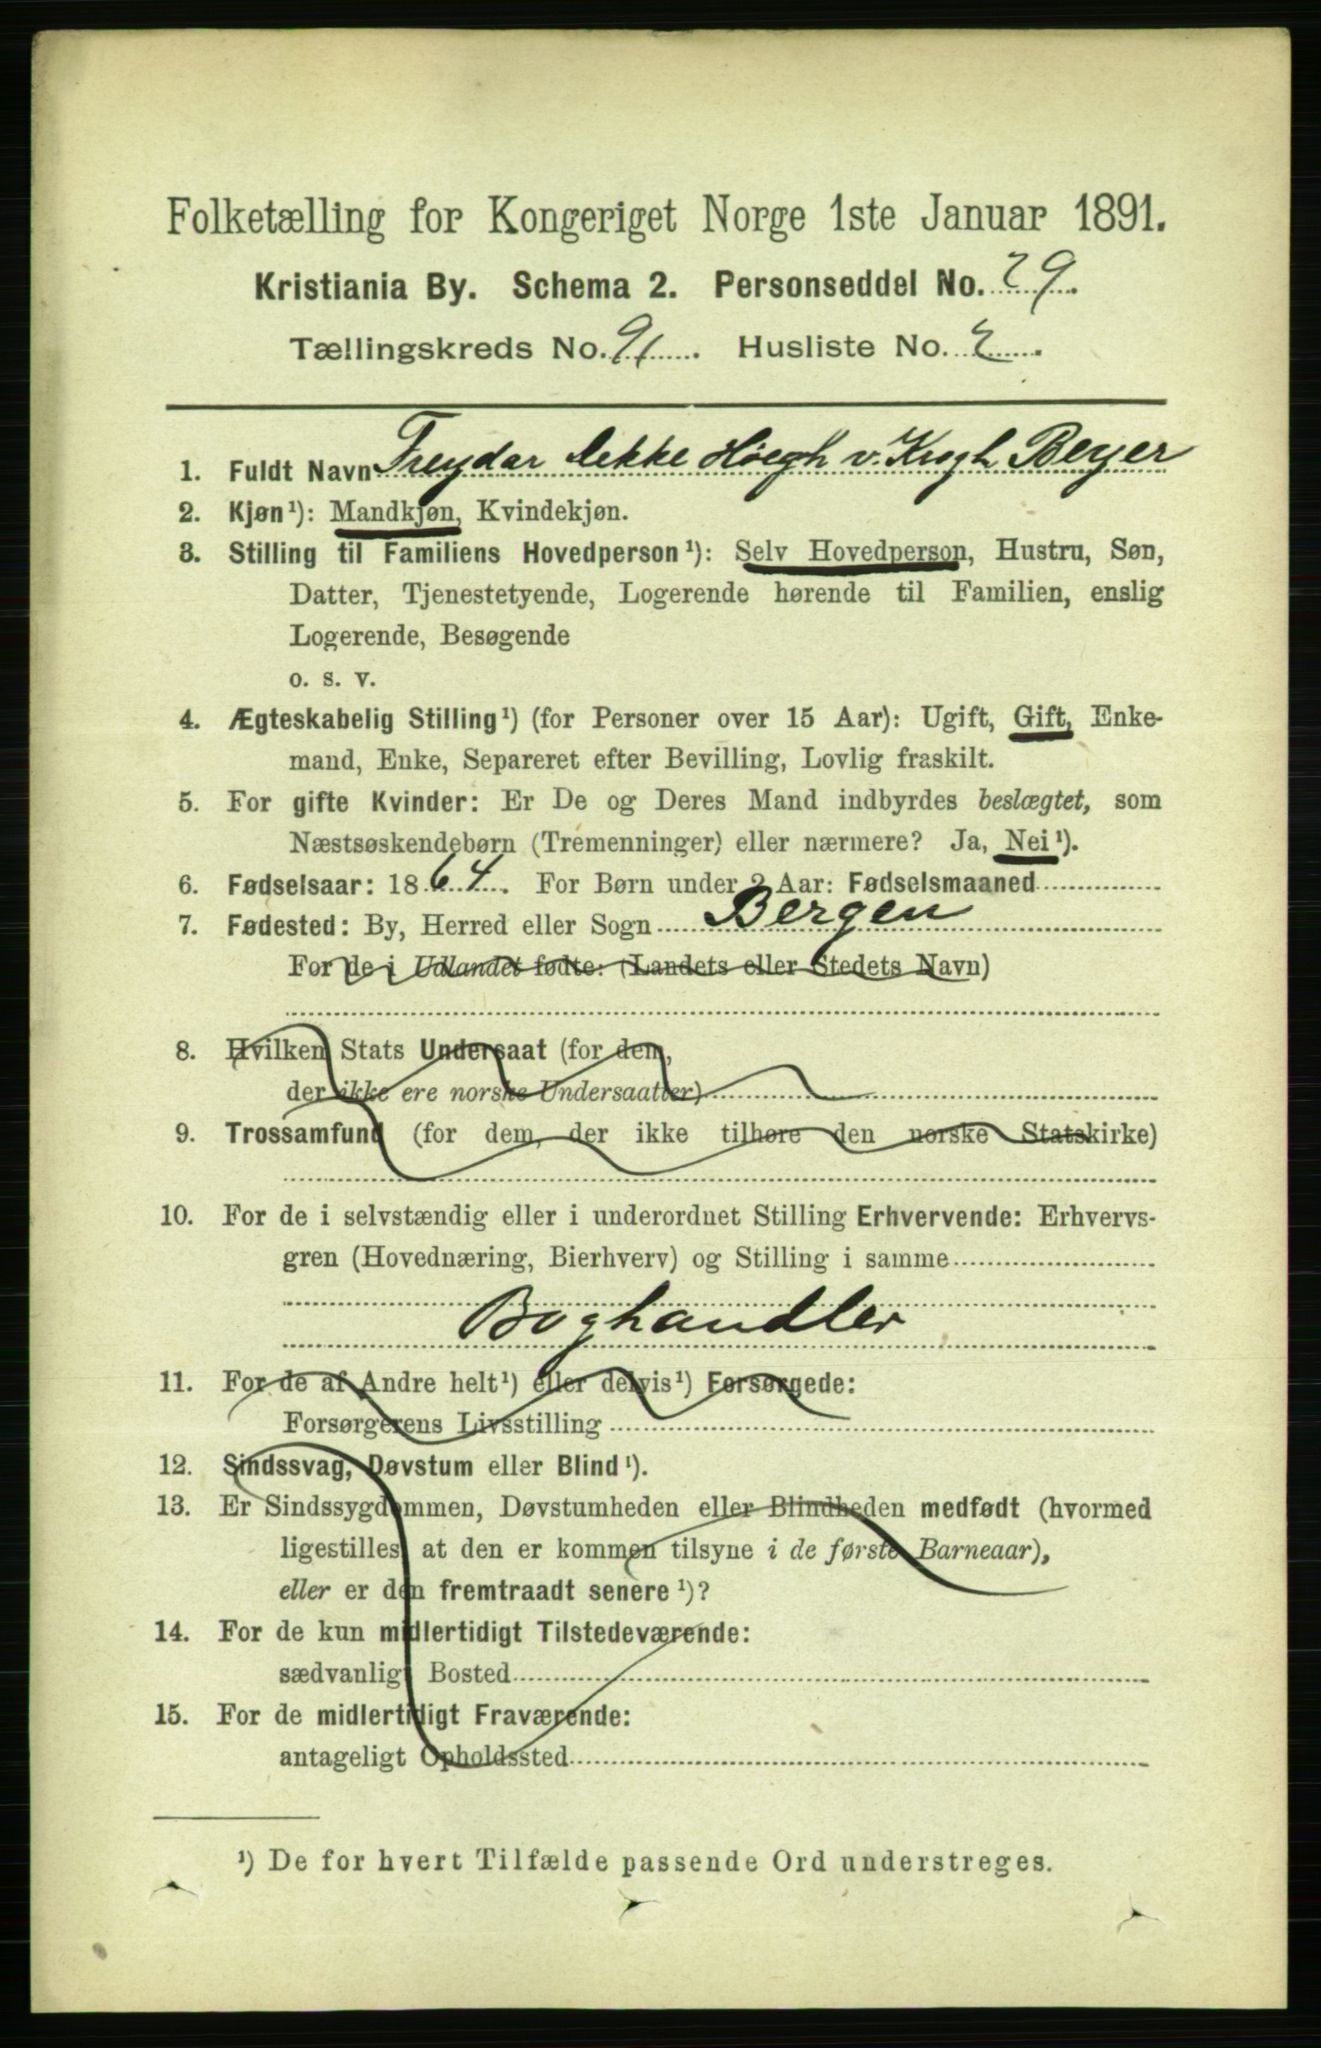 Folketælling for Kongeriget Norge 1ste Januar 1891.
Kristiania By. Schema 2. Personseddel No. 29.
Tællingskreds No. 91. Husliste No. 2.
1. Fuldt Navn Freydar Dekke Høegh v. Krogh Beyer
2. Kjøn¹): Mandkjøn, Kvindekjøn.
3. Stilling til Familiens Hovedperson¹): Selv Hovedperson, Hustru, Søn,
Datter, Tjenestetyende, Logerende hørende til Familien, enslig
Logerende, Besøgende
o. s. v.
4. Ægteskabelig Stilling¹) (for Personer over 15 Aar): Ugift, Gift, Enke-
mand, Enke, Separeret efter Bevilling, Lovlig fraskilt.
5. For gifte Kvinder: Er De og Deres Mand indbyrdes beslægtet, som
Næstsøskendebørn (Tremenninger) eller nærmere? Ja, Nei¹).
6. Fødselsaar: 1864. For Børn under 2 Aar: Fødselsmaaned
7. Fødested: By, Herred eller Sogn Bergen
For de i Udlandet fødte: (Landets eller Stedets Navn)
8. Hvilken Stats Undersaat (for dem,
der ikke ere norske Undersaatter)
9. Trossamfund (for dem, der ikke tilhøre den norske Statskirke)
10. For de i selvstændig eller i underordnet Stilling Erhvervende: Erhvervs-
gren (Hovednæring, Bierhverv) og Stilling i samme
Boghandler
11. For de af Andre helt¹) eller delvis¹) Forsørgede:
Forsørgerens Livsstilling
12. Sindssvag, Døvstum eller Blind¹).
13. Er Sindssygdommen, Døvstumheden eller Blindheden medfødt (hvormed
ligestilles at den er kommen tilsyne i de første Barneaar),
eller er den fremtraadt senere¹)?
14. For de kun midlertidigt Tilstedeværende:
sædvanligt Bosted
15. For de midlertidigt Fraværende:
antageligt Opholdssted
¹) De for hvert Tilfælde passende Ord understreges.